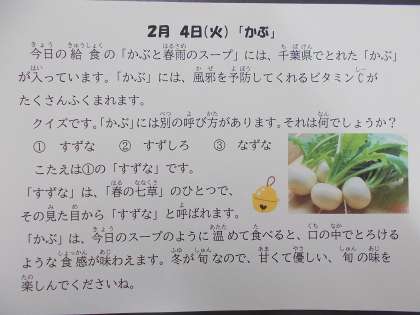 2月 4日(火) 「かぶ」
今日の給食の「かぶと春雨のスープ」には、千葉県でとれた「かぶ」
が入っています。「かぶ」には、風邪を予防してくれるビタミンCが
たくさんふくまれます。
クイズです。「かぶ」には別の呼び方があります。それは何でしょうか?
① すずな ② すずしろ ③ なずな
こたえは①の「すずな」です。
「すずな」は、「春の七草」のひとつで、
その見た目から「すずな」と呼ばれます。
「かぶ」は、今日のスープのように温めて食べると、口の中でとろける
ような食感が味わえます。冬が旬なので、甘くて優しい、旬の味を
楽しんでくださいね。